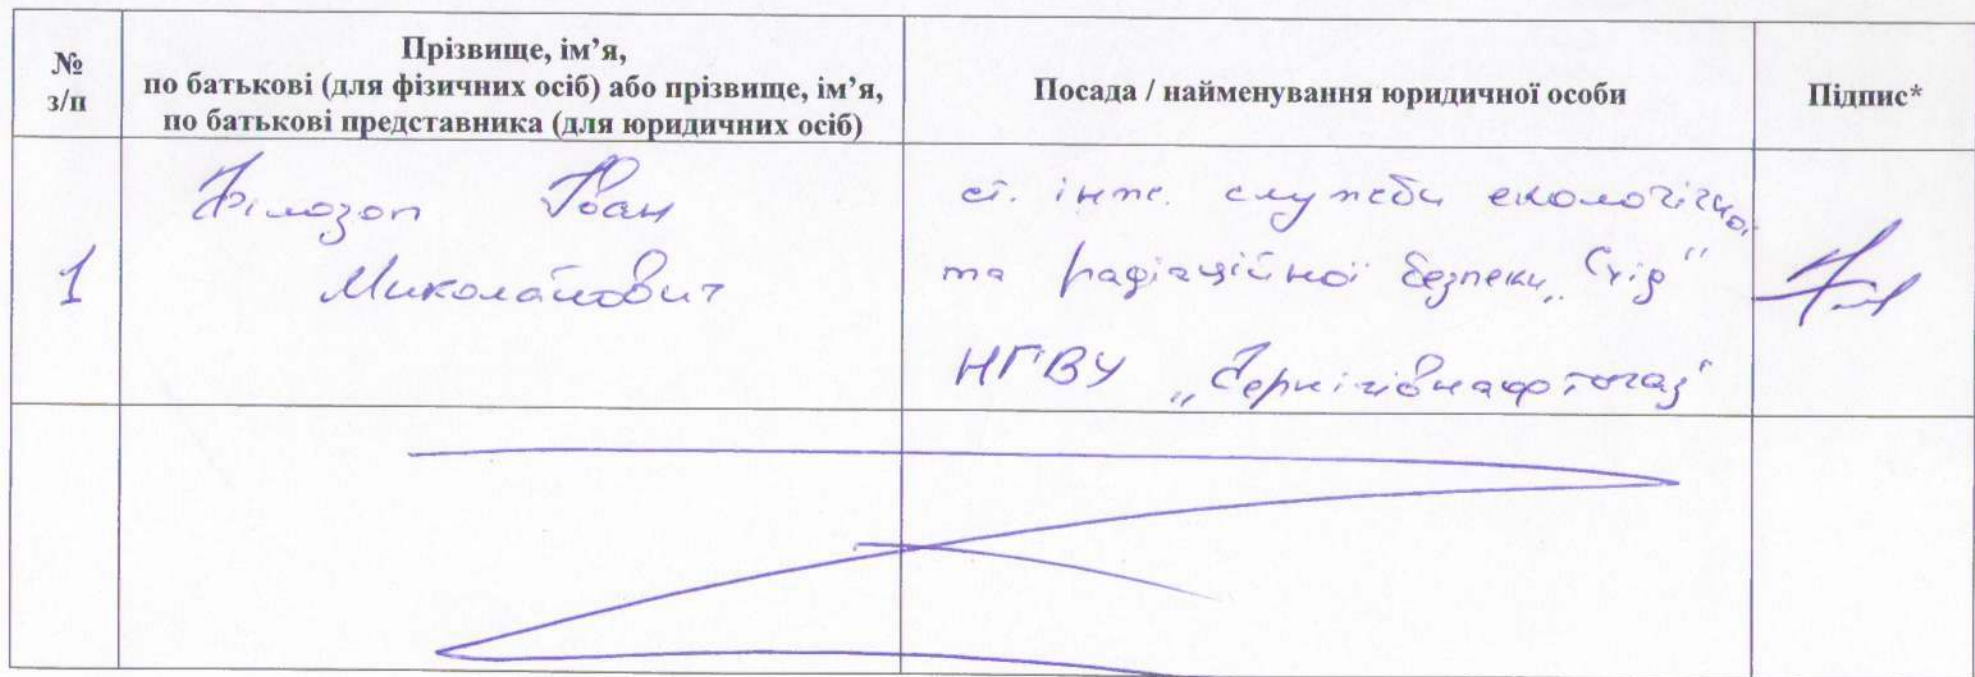 № з/п
Прізвище, ім’я,
по батькові (для фізичних осіб) або прізвище, ім’я,
по батькові представника (для юридичних осіб)
Посада / найменування юридичної особи
Підпис*
1
Філозоп Іван
Миколайович
ст. інж. служби екологічної
та радіаційної безпеки „Схід”
НГВУ „Чернігівнафтогаз”